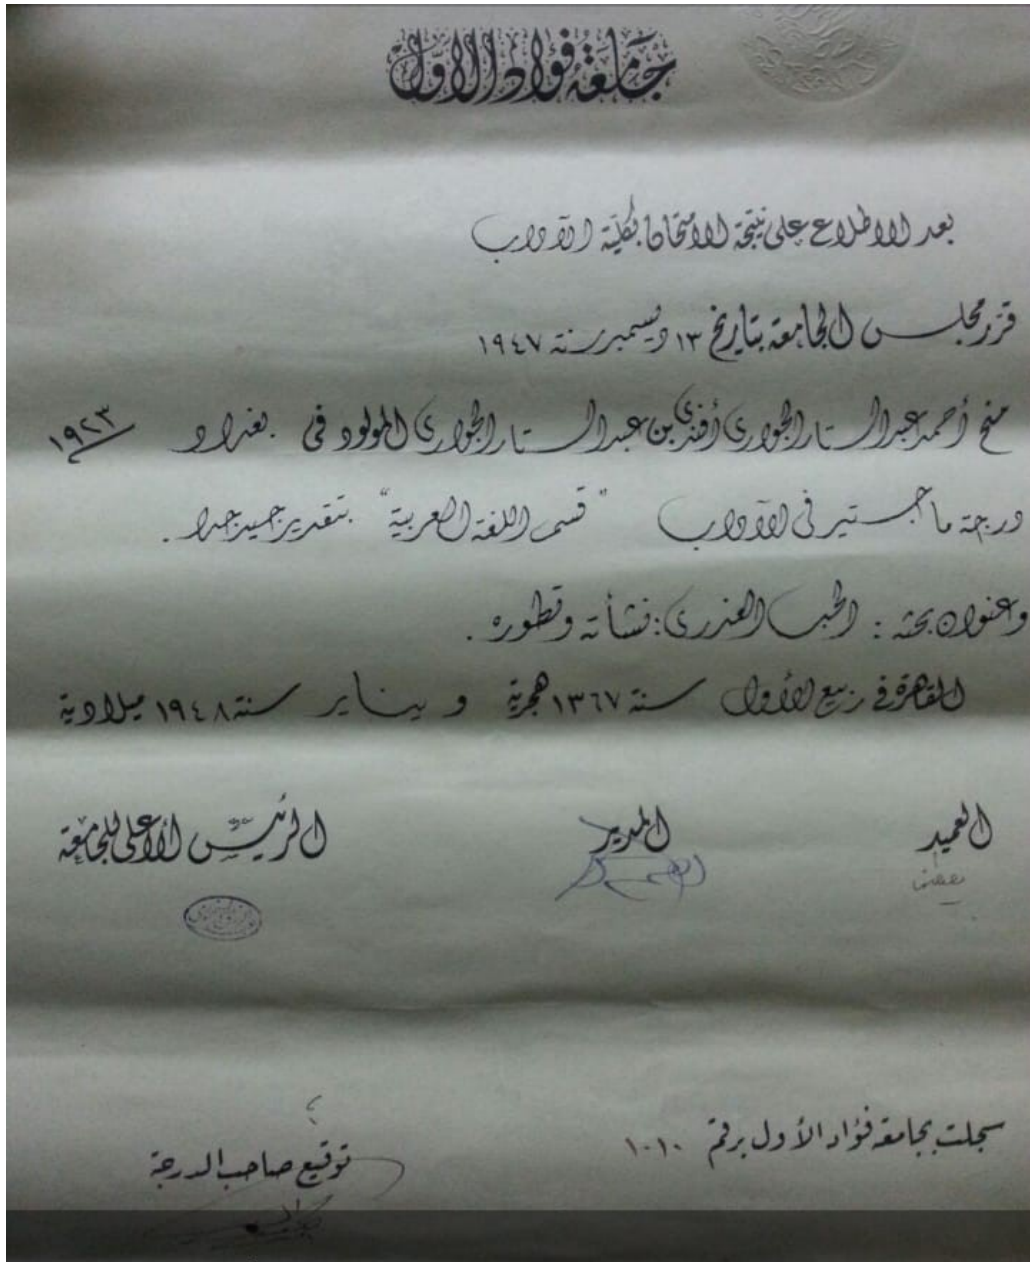 جامعة فؤاد الأول
بعد الاطلاع على نتيجة الامتحان بكلية الآداب
قرر مجلس الجامعة بتاريخ ١٣ ديسمبر سنة ١٩٤٧
منح أحمد عبد الستار الجوارى أفندى بن عبد الستار الجوارى المولود فى بغداد ١٩٢٣
درجة ماجستير فى الآداب "قسم اللغة العربية" بتقدير جيد جدا .
وعنوان بحثه : الحب العذرى : نشأته وتطوره .
القاهرة فى ربيع الأول سنة ١٣٦٧ هجرية و يناير سنة ١٩٤٨ ميلادية
العميد المدير الرئيس الأعلى للجامعة
سجلت بجامعة فؤاد الأول برقم ١٠١٠
توقيع صاحب الدرجة